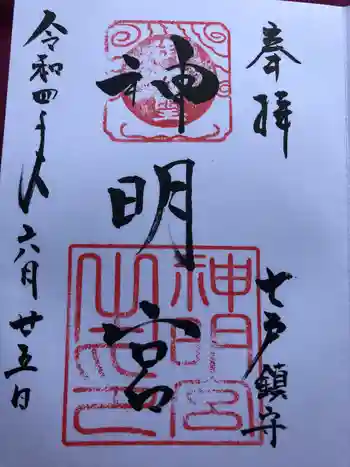 奉拝
七戸鎮守
神明宮
神明宮之印
令和四年 六月廿五日